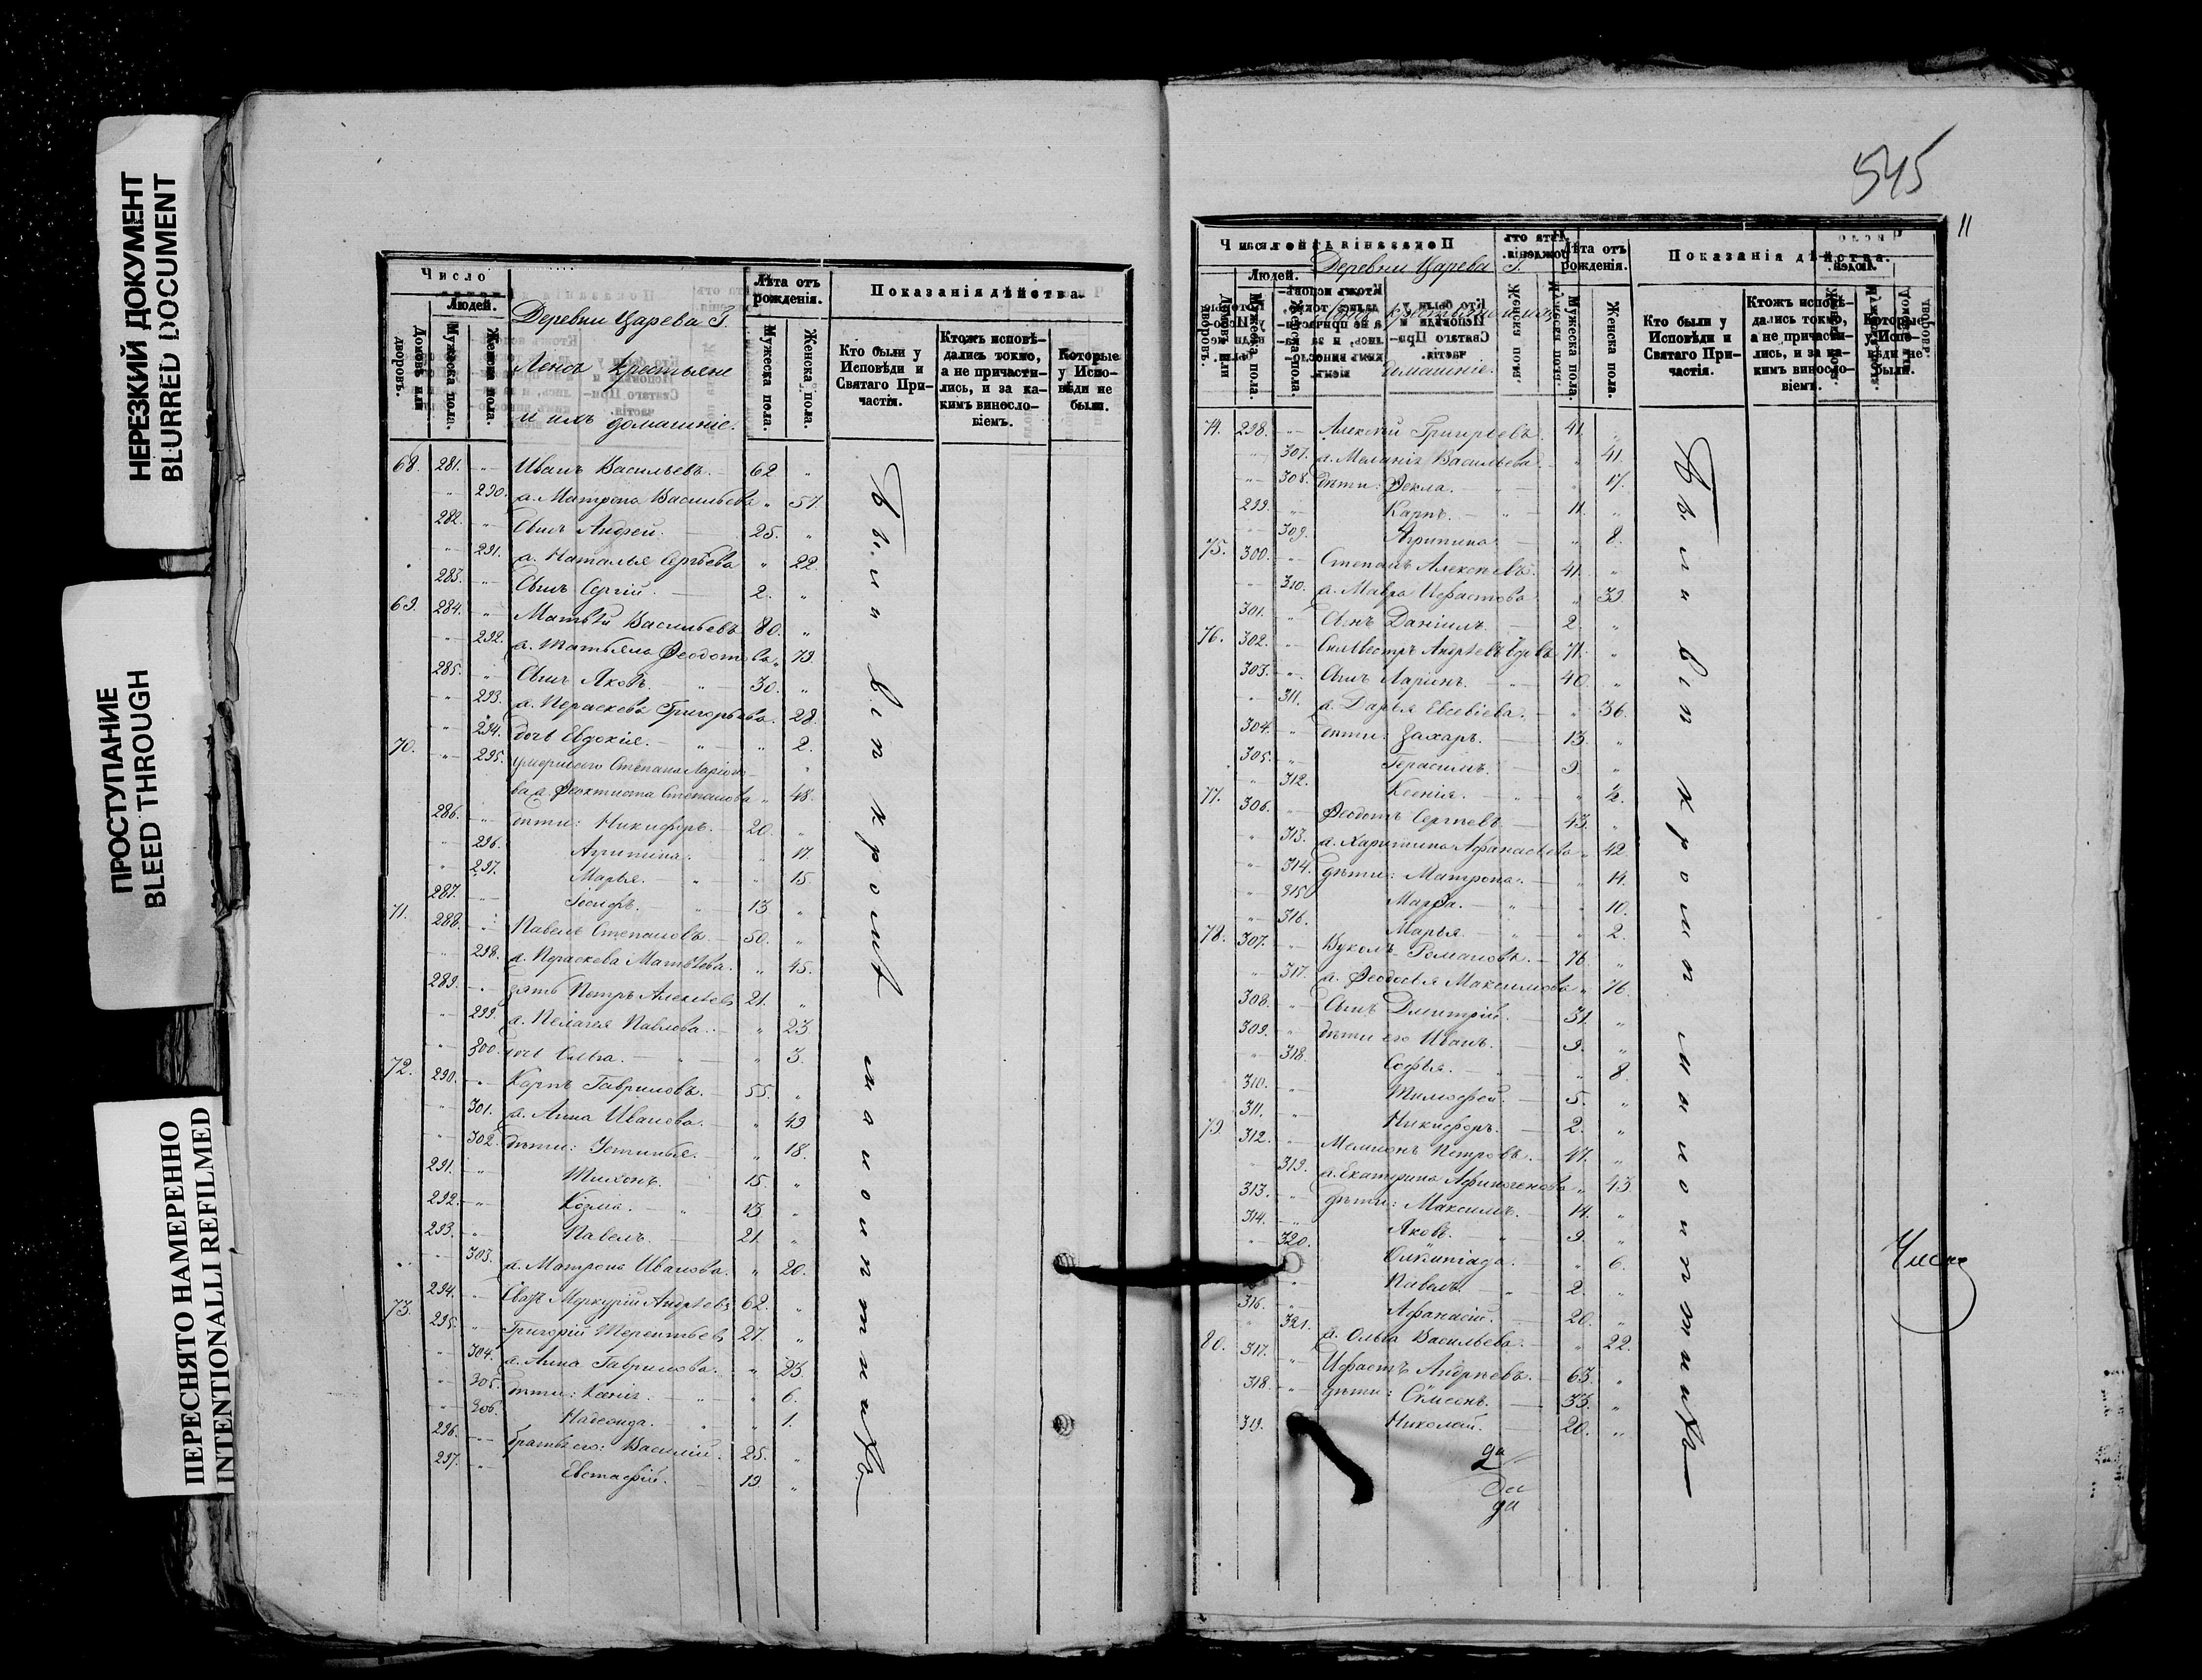 НЕРЕЗКИЙ ДОКУМЕНТ
BLURRED DOCUMENT
ПРОСТУПАНИЕ
BLEED THROUGH
ПЕРЕСНЯТО НАМЕРЕННО
INTENTIONALLI REFILMED
Число
Людей.
Домовъ или дворовъ.
Мужеска пола.
Женска пола.
Деревни Царева Г.
крестьяне
и ихъ домашніе.
Лѣта отъ рожденія.
Мужеска пола.
Женска пола.
Показанія дѣйства.
Кто были у Исповѣди и Святаго Причастія.
Ктожъ исповѣдались токмо, а не причастились, и за какимъ винословіемъ.
Которые у Исповѣди не были.
68. 281. Иванъ Васильевъ. 62
290. ж. Матрона Васильева 57.
282. Сынъ Андрей. 25.
291. ж. Наталья Сергѣева 22.
283. Сынъ Сергій. 2.
69. 284. Матвѣй Васильевъ 80.
292. ж. Татьяна Феодотова 79.
285. Сынъ Яковъ. 30.
293. ж. Параскева Григорьева. 28.
294. дочь Евдокія. 2.
70. 295. умершаго Степана Ларіоно-
ва ж. Феоктиста Степанова 48.
286. дѣти: Никифоръ. 20.
296. Агрипина. 17.
297. Марья. 15.
287. Іосифъ. 13
71. 288. Павелъ Степановъ. 50.
298. ж. Параскева Матвѣева. 45.
289. зять Петръ Алексѣевъ 21.
299. ж. Пелагея Павлова. 23
300. дочь Ольга. 3.
72. 290. Карпъ Гавриловъ. 55.
301. ж. Анна Иванова. 49
302. дѣти: Устинья. 18.
291. Тихонъ. 15.
292. Козма. 13
293. Павелъ. 21.
303. ж. Матрона Иванова. 20.
294. Меркурій Андрѣевъ 62.
73. 295. Григорій Терентьевъ 27.
304. ж. Анна Гаврилова. 23
305. дѣти: Ксенія. 6.
306. 1.
296. братья его: Василій. 25.
297. Евстафій. 19.
Были
545
11
Число
Людей.
Деревни Царева Г.
крестьяне и ихъ
домашніе.
Лѣта отъ рожденія.
Мужеска пола.
Женска пола.
Показанія дѣйства.
Кто были у Исповѣди и Святаго Причастія.
Ктожъ исповѣдались токмо, а не причастились, и за какимъ винословіемъ.
Которые у Исповѣди не были.
74. 298. Алексѣй Григорьевъ. 41.
307. ж. Меланія Васильева 41.
308. дѣти: Фекла. 17.
299. Карпъ. 11.
309. Агрипина 8.
75. 300. Степанъ Алексѣевъ. 41.
310. ж. Мавра 39
301. Сынъ Даніилъ. 2.
76. 302. Силвестръ Андрѣевъ 71.
303. Сынъ Ларіонъ. 40.
311. ж. Дарья Евсевіева. 36.
304. дѣти: Захаръ. 13.
305. Герасимъ. 9.
312. Ксенія. ½.
77. 306. Феодотъ Сергѣевъ 43.
313. ж. Харитина Афанасьева 42.
314. дѣти: Матрона. 14.
315. Марфа. 10.
316. Марья. 2.
78. 307. Вуколъ Романовъ. 76.
317. ж. Феодосья Максимова 76.
308. Сынъ Дмитрій. 31.
309. дѣти его Иванъ. 9.
318. Софья. 8.
310. Тимофей. 5.
311. Никифоръ. 2.
79 312. Петровъ. 47.
319. ж. Екатерина Афиногенова 43
313. дѣти: Максимъ. 14.
314. Яковъ. 9.
320. 6.
Павелъ. 2.
316. Афанасій. 20.
321. ж. Ольга Васильева. 22.
80. 317. Андрѣевъ. 63.
318. дѣти: Сѵмеонъ. 33.
319. Николай. 20.
Были
Число